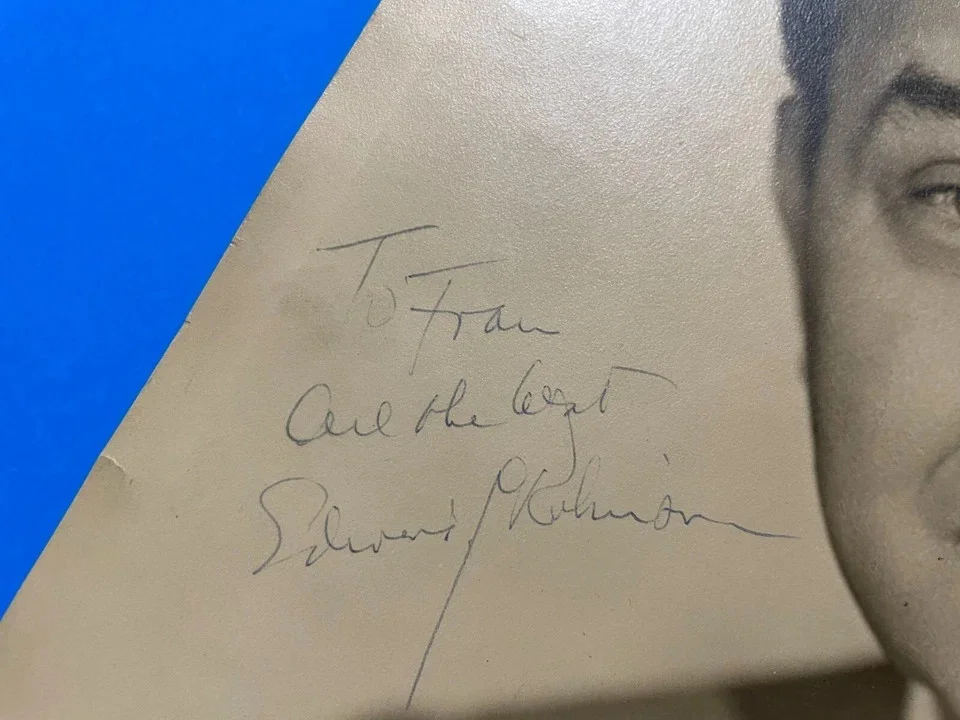 To Fran
All the best
Edward G Robinson